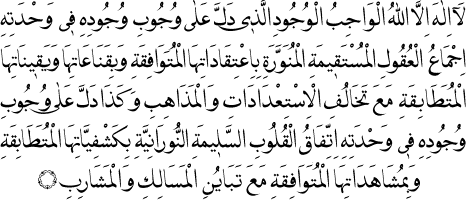 لَآ اِلٰهَ اِلَّا اللّٰهُ الْوَاجِبُ الْوُجُودِ الَّذٖى دَلَّ عَلٰى وُجُوبِ وُجُودِهٖ فٖى وَحْدَتِهٖ
اِجْمَاعُ الْعُقُولِ الْمُسْتَقٖيمَةِ الْمُنَوَّرَةِ بِاِعْتِقَادَاتِهَا الْمُتَوَافِقَةِ وَبِقَنَاعَاتِهَا وَيَقٖينَاتِهَا
الْمُتَطَابِقَةِ مَعَ تَخَالُفِ الْاِسْتِعْدَادَاتِ وَالْمَذَاهِبِ وَكَذَا دَلَّ عَلٰى وُجُوبِ
وُجُودِهٖ فٖى وَحْدَتِهٖ اِتِّفَاقُ الْقُلُوبِ السَّلٖيمَةِ النُّورَانِيَّةِ بِكَشْفِيَّاتِهَا الْمُتَطَابِقَةِ
وَبِمُشَاهَدَاتِهَا الْمُتَوَافِقَةِ مَعَ تَبَايُنِ الْمَسَالِكِ وَالْمَشَارِبِ ۞